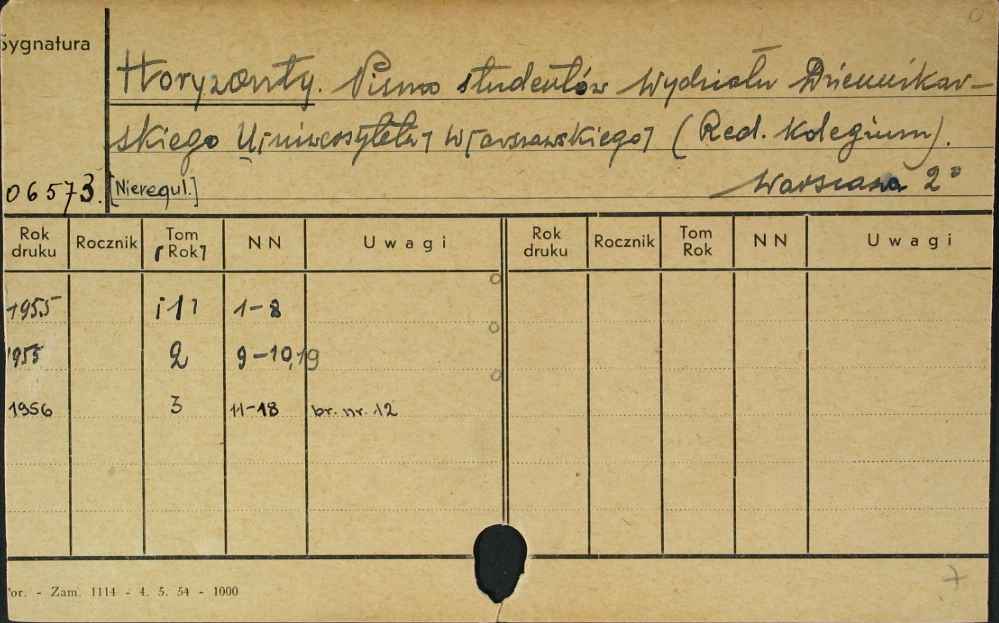 Sygnatura
Horyzonty. Pismo studentów Wydziału Dziennikar-
skiego U[niwersytetu] W[arszawskiego] (Red. Kolegium).
06573. [Nieregul.] Warszawa 2°
Rok druku Rocznik Tom [Rok] NN Uwagi Rok druku Rocznik Tom Rok NN Uwagi
1955 [1] 1-8
1955 2 9-10,19
1956 3 11-18 br. nr. 12
or. - Zam. 1114 - 4. 5. 54 - 1000